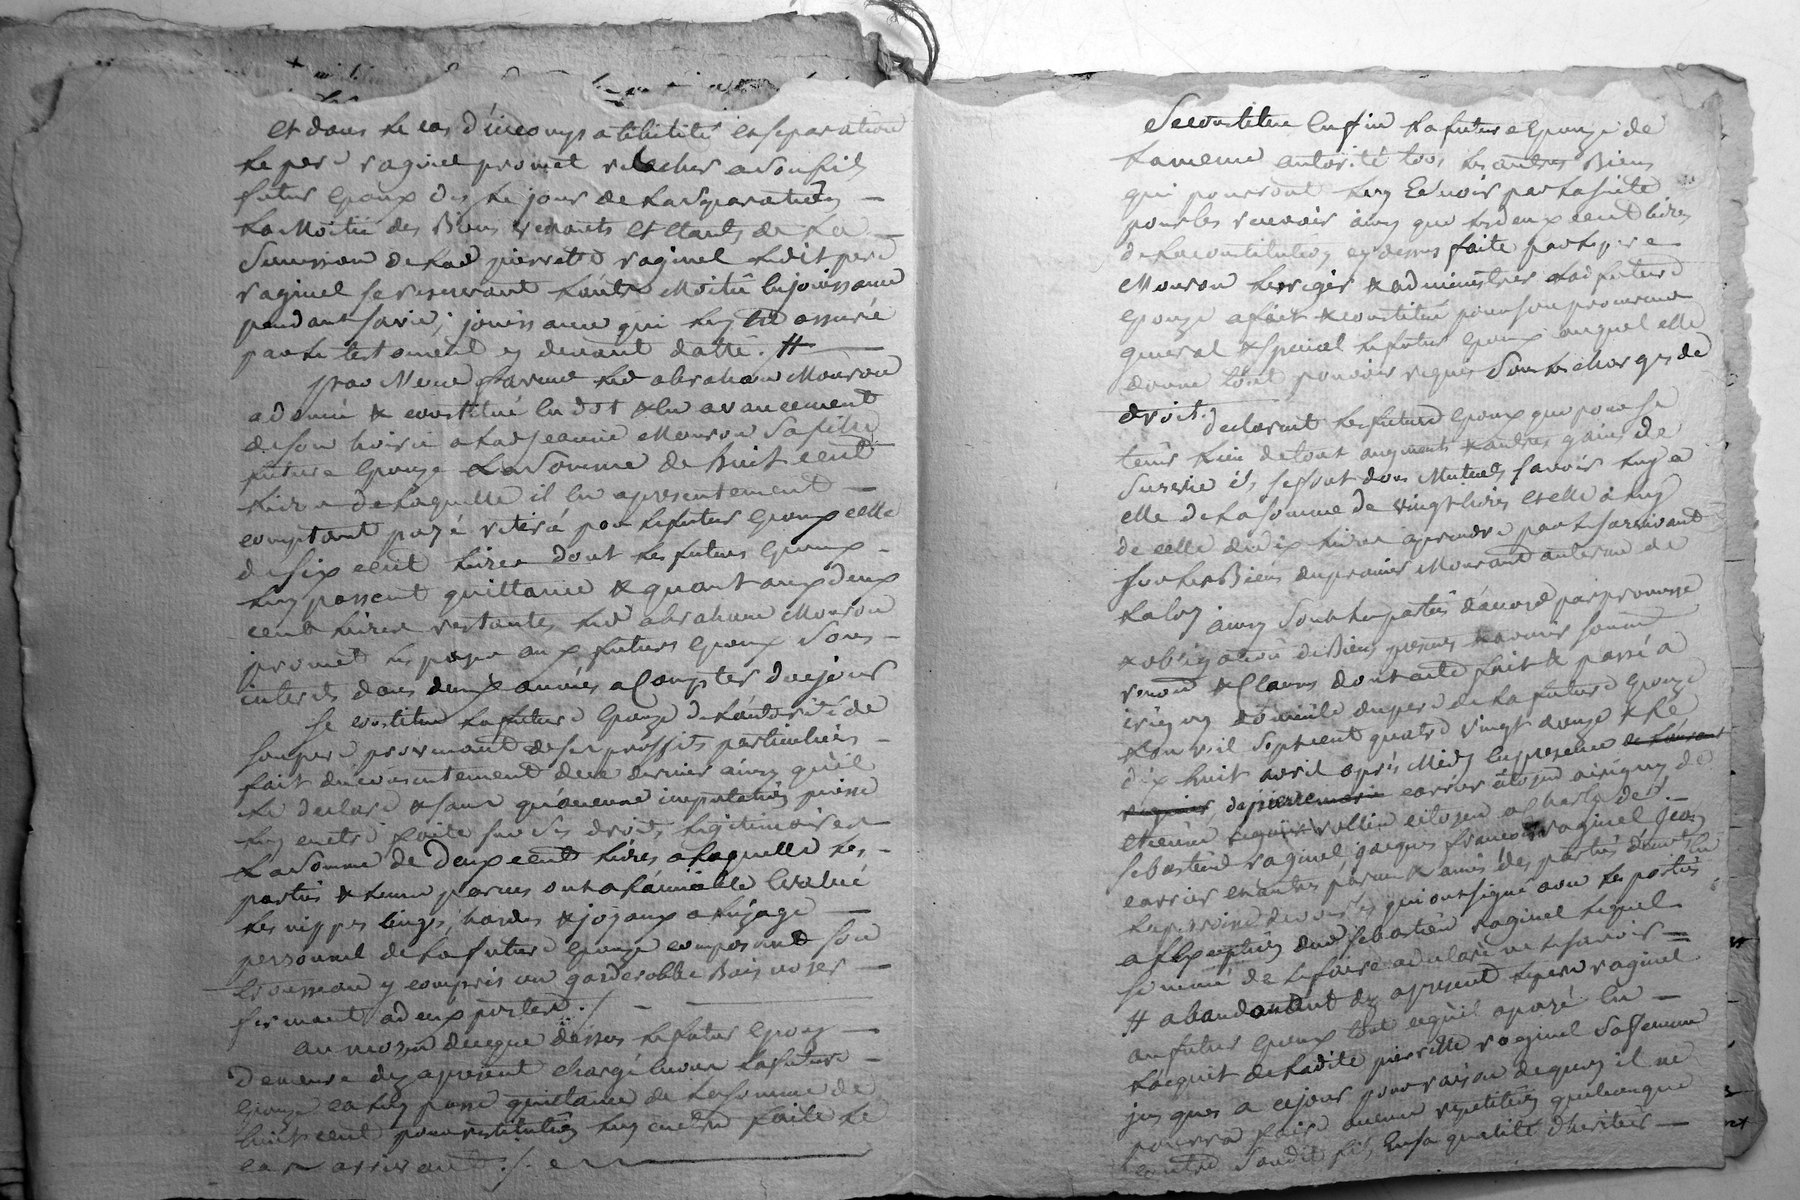 et dans le cas d'incompatibilité et separation
le pere raginel promet relacher a son fils
futur epoux des le jour de la separation
la Moitié des Biens venants et etants de la
Succession de lad pierrette raginel ledit pere
raginel se reservant l'autre Moitié en jouissance
pendant sa vie; jouissance qui luy est assurée
par le testament cy devant datté. #
par Meme faveur led abraham Mouron
a donné & constitué en dot & en avancement
de son hoirie a lad jeanne Mouron Sa fille
future Epouze la Somme de huit cent
livres de laquelle il en a presentement
comptant payé & retiré par le futur Epoux celle
de six cent livres dont les futurs Epoux
luy passent quittance & quant aux deux
cent livres restantes led abraham Mouron
promet les payer aux futurs Epoux Sans
interets dans deux années a Compter de ce jour
Se constitue la future Epouze de l'autorité de
Son pere provenant de ses proffits particuliers
fait du consentement de ce dernier ainsy qu'il
le declare & sans qu'aucune imputation puisse
luy en etre faite sur Ses droits legitimaires
La Somme de Deux cent livres a laquelle les
parties & leurs parens ont a l'amiable Evalué
les nippes linges, hardes & joyaux a l'usage
personnel de la future Epouze composant Son
trousseau y compris un garderobbe Bois noyer
fermant a deux portes ./.
au moyen de ce que dessus le futur Epoux
demeure dez apresent chargé envers la future
Epouze et luy passe quittance de la Somme de
huit cent pour restitution luy en etre faite le
cas arrivant ./.
Se constitue Enfin la future Epouze de
la meme autorité tous les autres Biens
qui pourront luy Echoir par la suite
pour les recevoir ainsy que les deux cent livres
de la constitution cy dessus faite par le pere
Mouron les regir & administrer lad future
Epouze a fait & constitué pour son procureur
general & special le futur Epoux auquel elle
donne tout pouvoir requis Sous les charges de
droit.
declarant les futurs Epoux que pour se
tenir lieu de tout augment & autres gains de
Survie ils se font dons Mutuels savoir luy a
elle de la somme de vingt livres et elle a luy
de celle de dix livres a prendre par le survivant
sur les Biens du premier Mourant au terme de
la loy
ainsy sont les parties d'accord par promesse
& obligation de Biens presens & avenir soumis
renon & Clauses dont acte fait & passé a
irigny domicile du pere de la future Epouze
l'an mil Sept cent quatre vingt douze & le
dix huit avril après Midy en presence de
carrier citoyen a irigny de
etienne rollin citoyen a charly de
Sebastien raginel jacques francois raginel jean
carrier et autres parens & amis des parties
qui ont signé avec les parties
a l'exception dud Sebastien raginel lequel
sommé de le faire a declaré ne le savoir
# abandonant dez apresent le pere raginel
au futur Epoux tout ce qu'il a payé en
l'acquit de ladite pierrette raginel Sa femme
jusques a ce jour pour raison de quoy il ne
pourra faire aucune repetition quelconque
contre Son dit fils, En sa qualité d'heritier